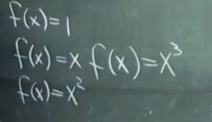 f(x)=1
f(x)=x f(x)=x³
f(x)=x²